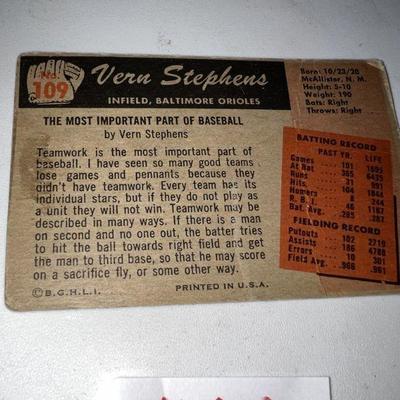 No.
109
Vern Stephens
INFIELD, BALTIMORE ORIOLES
Born: 10/23/20
McAllister, N. M.
Height: 5-10
Weight: 190
Bats: Right
Throws: Right
THE MOST IMPORTANT PART OF BASEBALL
by Vern Stephens
Teamwork is the most important part of
baseball. I have seen so many good teams
lose games and pennants because they
didn't have teamwork. Every team has its
individual stars, but if they do not play as
a unit they will not win. Teamwork may be
described in many ways. If there is a man
on second and no one out, the batter tries
to hit the ball towards right field and get
the man to third base, so that he may score
on a sacrifice fly, or some other way.
BATTING RECORD
PAST YR. LIFE
Games 101 1695
At Bat 365 6435
Runs 31 991
Hits 104 1844
Homers 8 244
R. B. I. 46 1167
Bat. Av. .285 .287
FIELDING RECORD
Putouts 102 2719
Assists 186 4788
Errors 10 301
Field Avg. .966 .961
©B.G.H.L.I.
PRINTED IN U.S.A.